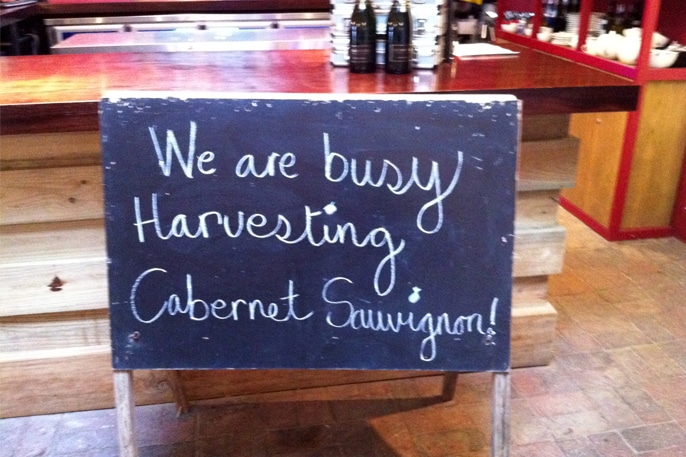 We are busy
Harvesting
Cabernet Sauvignon!